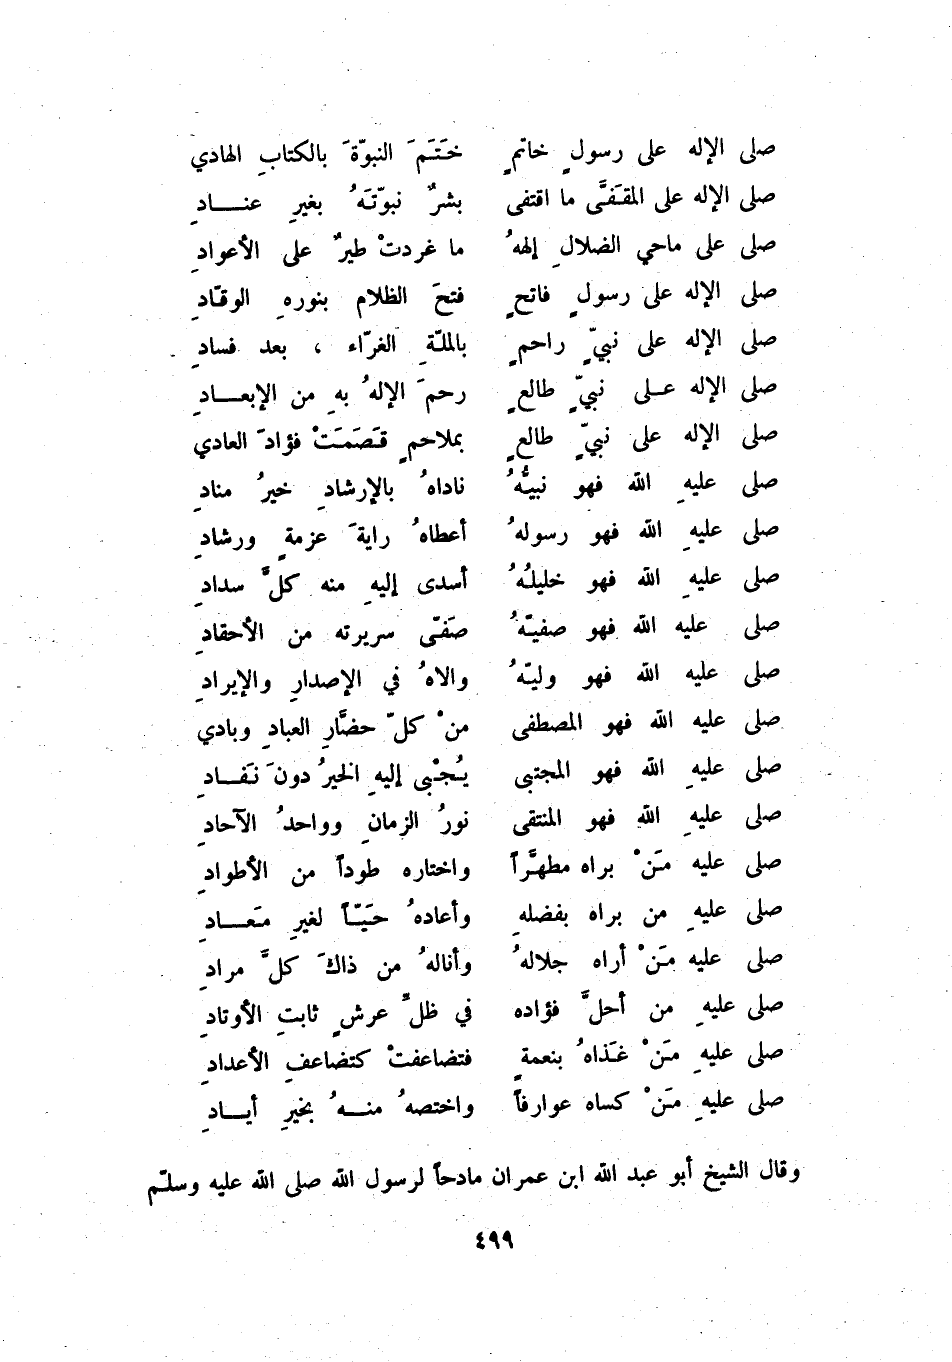 صلى الإله على رسولٍ خاتمٍ خَتَمَ النبوّةَ بالكتابِ الهادي
صلى الإله على المقَفَّى ما اقتفى بشرٌ نبوّتَهُ بغيرِ عنـــادِ
صلى على ماحي الضلالِ إلههُ ما غردتْ طيرٌ على الأعوادِ
صلى الإله على رسولٍ فاتحٍ فتحَ الظلام بنورهِ الوقّادِ
صلى الإله على نبيٍّ راحمٍ بالملّةِ الغرّاء ، بعد فسادِ
صلى الإله علـى نبيٍّ طالعٍ رحمَ الإلهُ بهِ من الإبعـــادِ
صلى الإله على نبيٍّ طالعٍ بملاحمٍ قَصَمَتْ فؤادَ العادي
صلى عليهِ الله فهو نبيُّهُ ناداهُ بالإرشادِ خيرُ منادِ
صلى عليهِ الله فهو رسولهُ أعطاهُ رايةَ عزمةٍ ورشادِ
صلى عليهِ الله فهو خليلُهُ أسدى إليهِ منه كلَّ سدادِ
صلى عليه الله فهو صفيّهُ صَفّى سريرته من الأحقادِ
صلى عليه الله فهو وليّهُ والاهُ في الإصدارِ والإيرادِ
صلى عليه الله فهو المصطفى منْ كلّ حضَّارِ العبادِ وبادي
صلى عليهِ الله فهو المجتبى يُجْبى إليهِ الخيرُ دونَ نَفـــادِ
صلى عليهِ اللهِ فهو المنتقى نورُ الزمانِ وواحدُ الآحادِ
صلى عليه مَنْ براه مطهَّراً واختاره طوداً من الأطوادِ
صلى عليهِ من براه بفضلهِ وأعادهُ حَيّــاً لغيرِ مَعـــادِ
صلى عليه مَنْ أراه جلالهُ وأنالهُ من ذاكَ كلَّ مرادِ
صلى عليهِ من أحلَّ فؤاده في ظلِّ عرشٍ ثابتِ الأوتادِ
صلى عليهِ مَنْ غَذاهُ بنعمةٍ فتضاعفتْ كتضاعفِ الأعدادِ
صلى عليهِ مَنْ كساه عوارفاً واختصهُ منـــهُ بخيرِ أيـــادِ
وقال الشيخ أبو عبد الله ابن عمران مادحاً لرسول الله صلى الله عليه وسلّم
٤٩٩